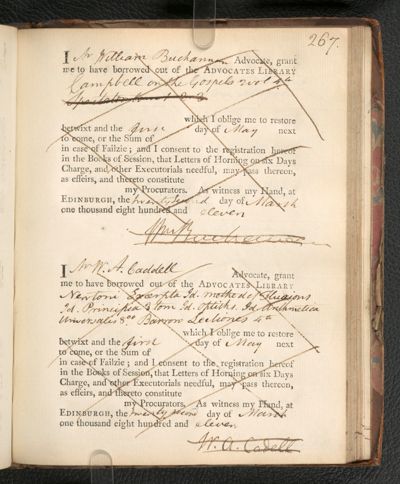 267.
I Mr William Buchanan Advocate, grant
me to have borrowed out of the ADVOCATES LIBRARY
Campbell on the Gospels 2 vol 4to
which I oblige me to restore
betwixt and the first day of May next
to come, or the Sum of
in case of Failzie; and I consent to the registration hereof
in the Books of Session, that Letters of Horning on six Days
Charge, and other Executorials needful, may pass thereon,
as effeirs, and thereto constitute
my Procurators. As witness my Hand, at
EDINBURGH, the twenty second day of March
one thousand eight hundred and eleven
Wm Buchanan
I Mr W. A. Caddell Advocate, grant
me to have borrowed out of the ADVOCATES LIBRARY
Newtoni Excerpta Id. methodus fluxions
Id. Principia 3 tom Id. Opticks. Id. Arithmetica
Universalis 8vo Barrow Lectiones 4to
which I oblige me to restore
betwixt and the first day of May next
to come, or the Sum of
in case of Failzie; and I consent to the registration hereof
in the Books of Session, that Letters of Horning on six Days
Charge, and other Executorials needful, may pass thereon,
as effeirs, and thereto constitute
my Procurators. As witness my Hand, at
EDINBURGH, the twenty second day of March
one thousand eight hundred and eleven
W. A. Cadell